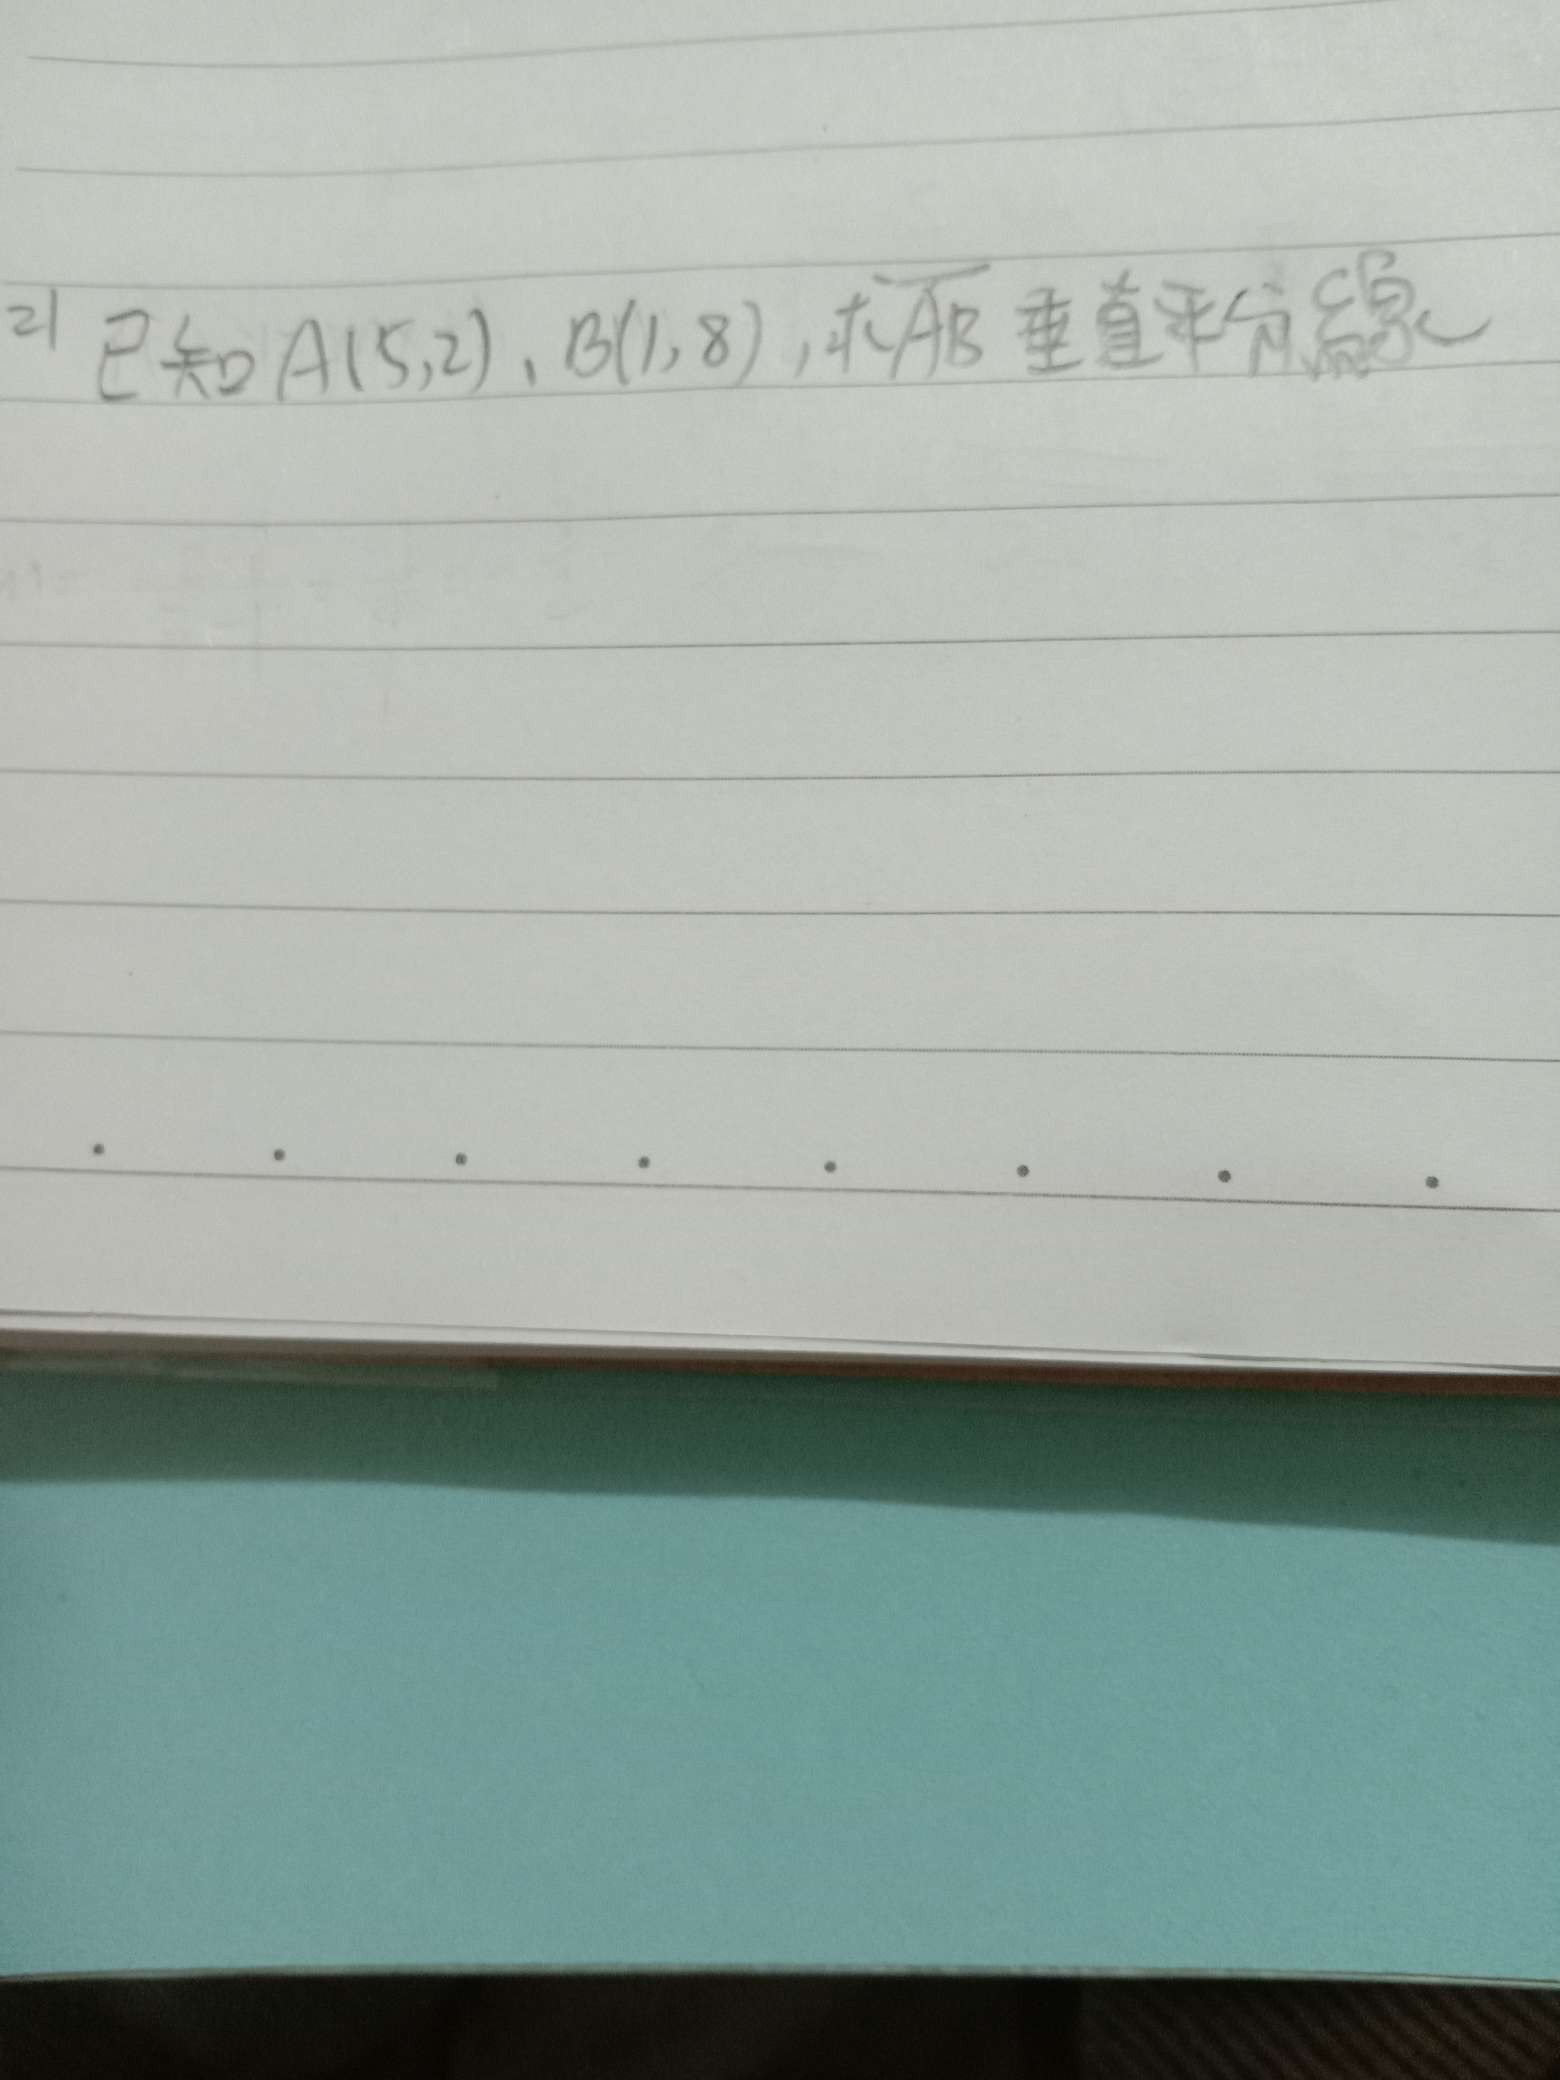 21 已知A(5,2)、B(1,8),求A̅B̅垂直平分線